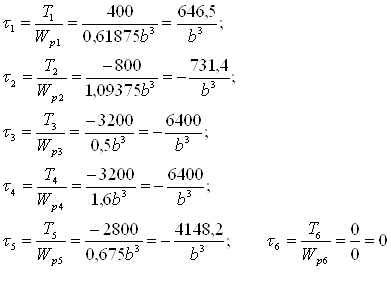 τ₁ = T₁/W_{p1} = 400/0,61875b³ = 646,5/b³;
τ₂ = T₂/W_{p2} = −800/1,09375b³ = −731,4/b³;
τ₃ = T₃/W_{p3} = −3200/0,5b³ = −6400/b³;
τ₄ = T₄/W_{p4} = −3200/1,6b³ = −6400/b³;
τ₅ = T₅/W_{p5} = −2800/0,675b³ = −4148,2/b³; τ₆ = T₆/W_{p6} = 0/0 = 0